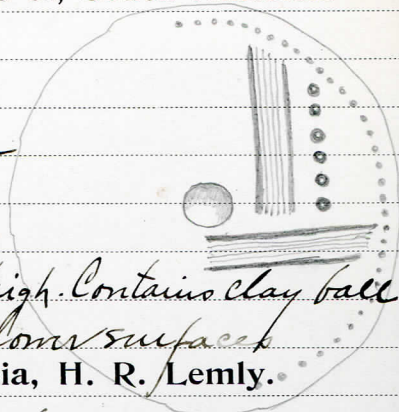 high. Contains clay ball
lower surfaces
ia, H. R. Lemly.